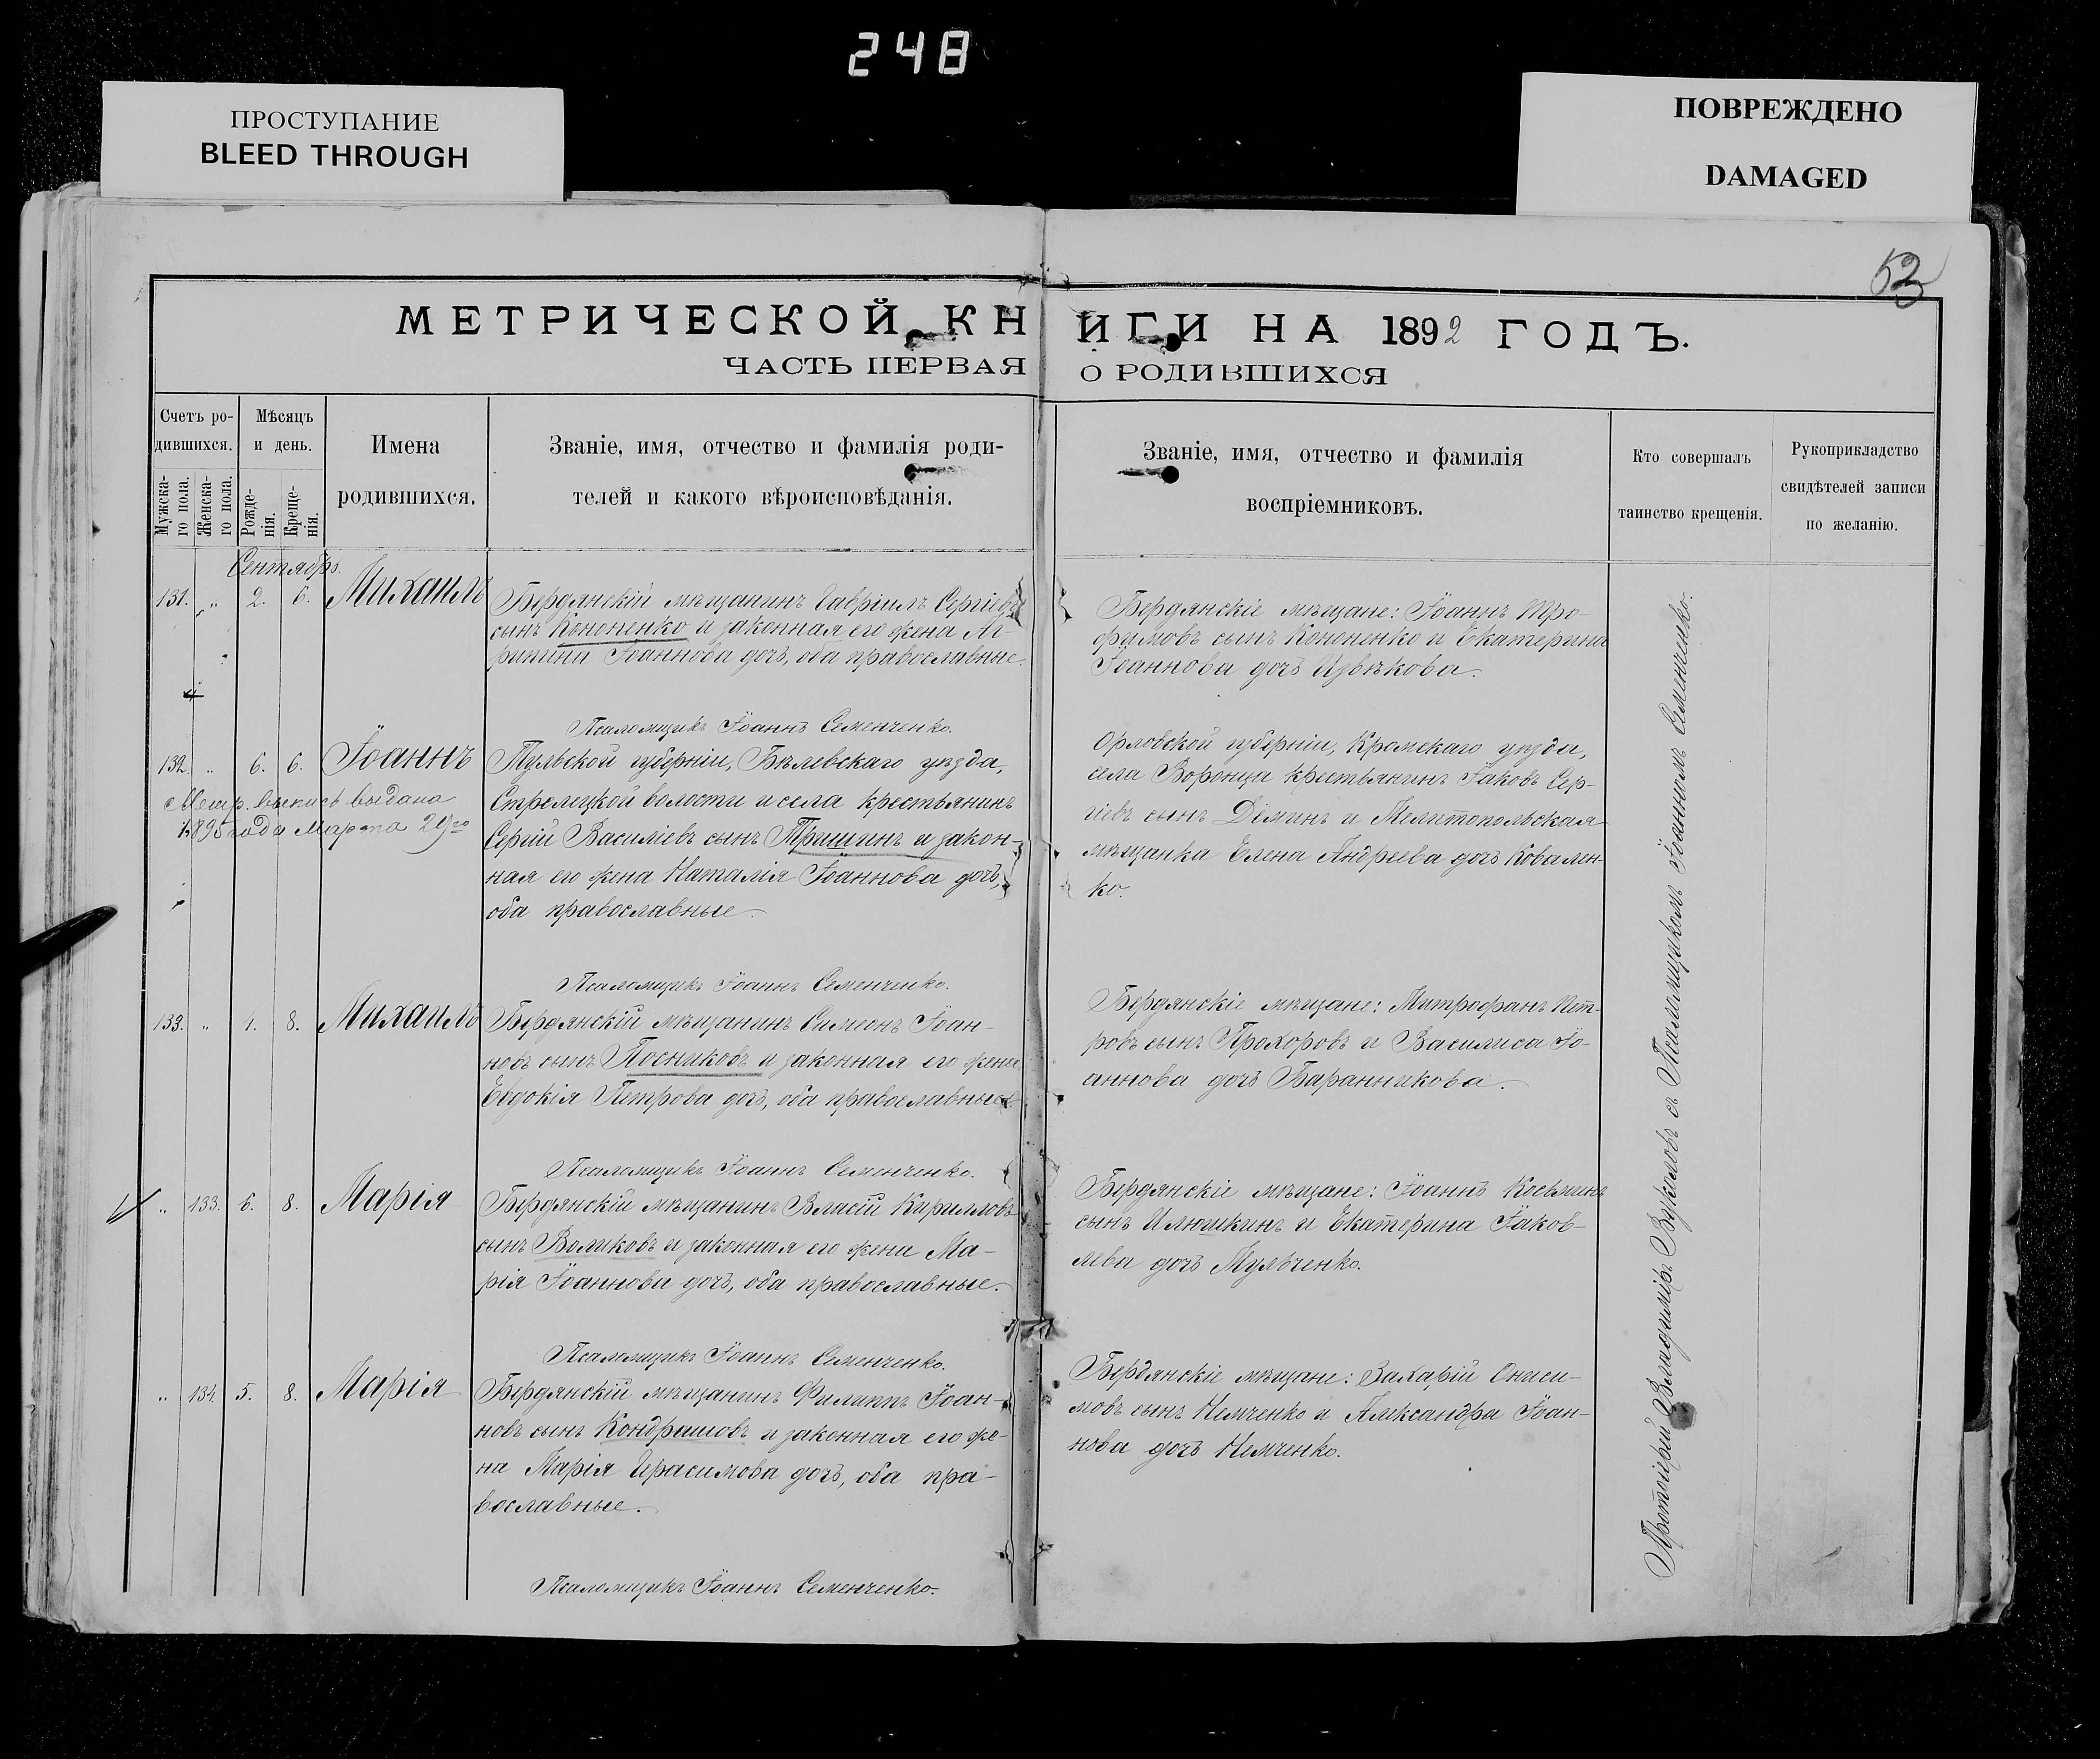 248
ПРОСТУПАНИЕ
BLEED THROUGH
ПОВРЕЖДЕНО
DAMAGED
53
МЕТРИЧЕСКОЙ КНИГИ НА 1892 ГОДЪ.
ЧАСТЬ ПЕРВАЯ О РОДИВШИХСЯ
Счетъ ро-
дившихся.
Мужска-
го пола.
Женска-
го пола.
Мѣсяцъ
и день.
Рожде-
нія.
Креще-
нія.
Имена
родившихся.
Званіе, имя, отчество и фамилія роди-
телей и какого вѣроисповѣданія.
Званіе, имя, отчество и фамилія
воспріемниковъ.
Кто совершалъ
таинство крещенія.
Рукоприкладство
свидѣтелей записи
по желанію.
Сентябрь.
131. „ 2. 6. Михаилъ
Бердянскій мѣщанинъ Гавріилъ Сергіевъ
сынъ Кононенко и законная его жена Аг-
рипина Іоаннова дочь, оба православные.
Псаломщикъ Іоаннъ Семенченко.
Бердянскіе мѣщане: Іоаннъ Тро-
фимовъ сынъ Кононенко и Екатерина
Іоаннова дочь Извѣкова.
132. „ 6. 6. Іоаннъ
Метр. выпись выдана
1895 года Марта 29го
Тульской губерніи, Бѣлевскаго уѣзда,
Стрелецкой волости и села крестьянинъ
Сергій Василіевъ сынъ Тришинъ и закон-
ная его жена Наталія Іоаннова дочь,
оба православные.
Псаломщикъ Іоаннъ Семенченко.
Орловской губерніи, Кромскаго уѣзда,
села Воронца крестьянинъ Іаковъ Сер-
гіевъ сынъ Дёминъ и Мелитопольская
мѣщанка Елена Андреева дочь Ковален-
ко.
133. „ 1. 8. Михаилъ
Бердянскій мѣщанинъ Симеонъ Іоан-
новъ сынъ Посниковъ и законная его жена
Евдокія Петрова дочь, оба православные.
Псаломщикъ Іоаннъ Семенченко.
Бердянскіе мѣщане: Митрофанъ Пет-
ровъ сынъ Прохоровъ и Василиса Іо-
аннова дочь Баранникова.
„ 133. 6. 8. Марія
Бердянскій мѣщанинъ Власій Кирилловъ
сынъ Воликовъ и законная его жена Ма-
рія Іоаннова дочь, оба православные.
Псаломщикъ Іоаннъ Семенченко.
Бердянскіе мѣщане: Іоаннъ Косьминъ
сынъ Илюшкинъ и Екатерина Іаков-
лева дочь Мульченко.
„ 134. 5. 8. Марія
Бердянскій мѣщанинъ Филиппъ Іоан-
новъ сынъ Кондрашовъ и законная его же-
на Марія Герасимова дочь, оба пра-
вославные.
Псаломщикъ Іоаннъ Семенченко.
Бердянскіе мѣщане: Захарій Ониси-
мовъ сынъ Немченко и Александра Іоан-
нова дочь Немченко.
Протоіерей Владиміръ Вуколовъ съ Псаломщикомъ Іоанномъ Семенченко.